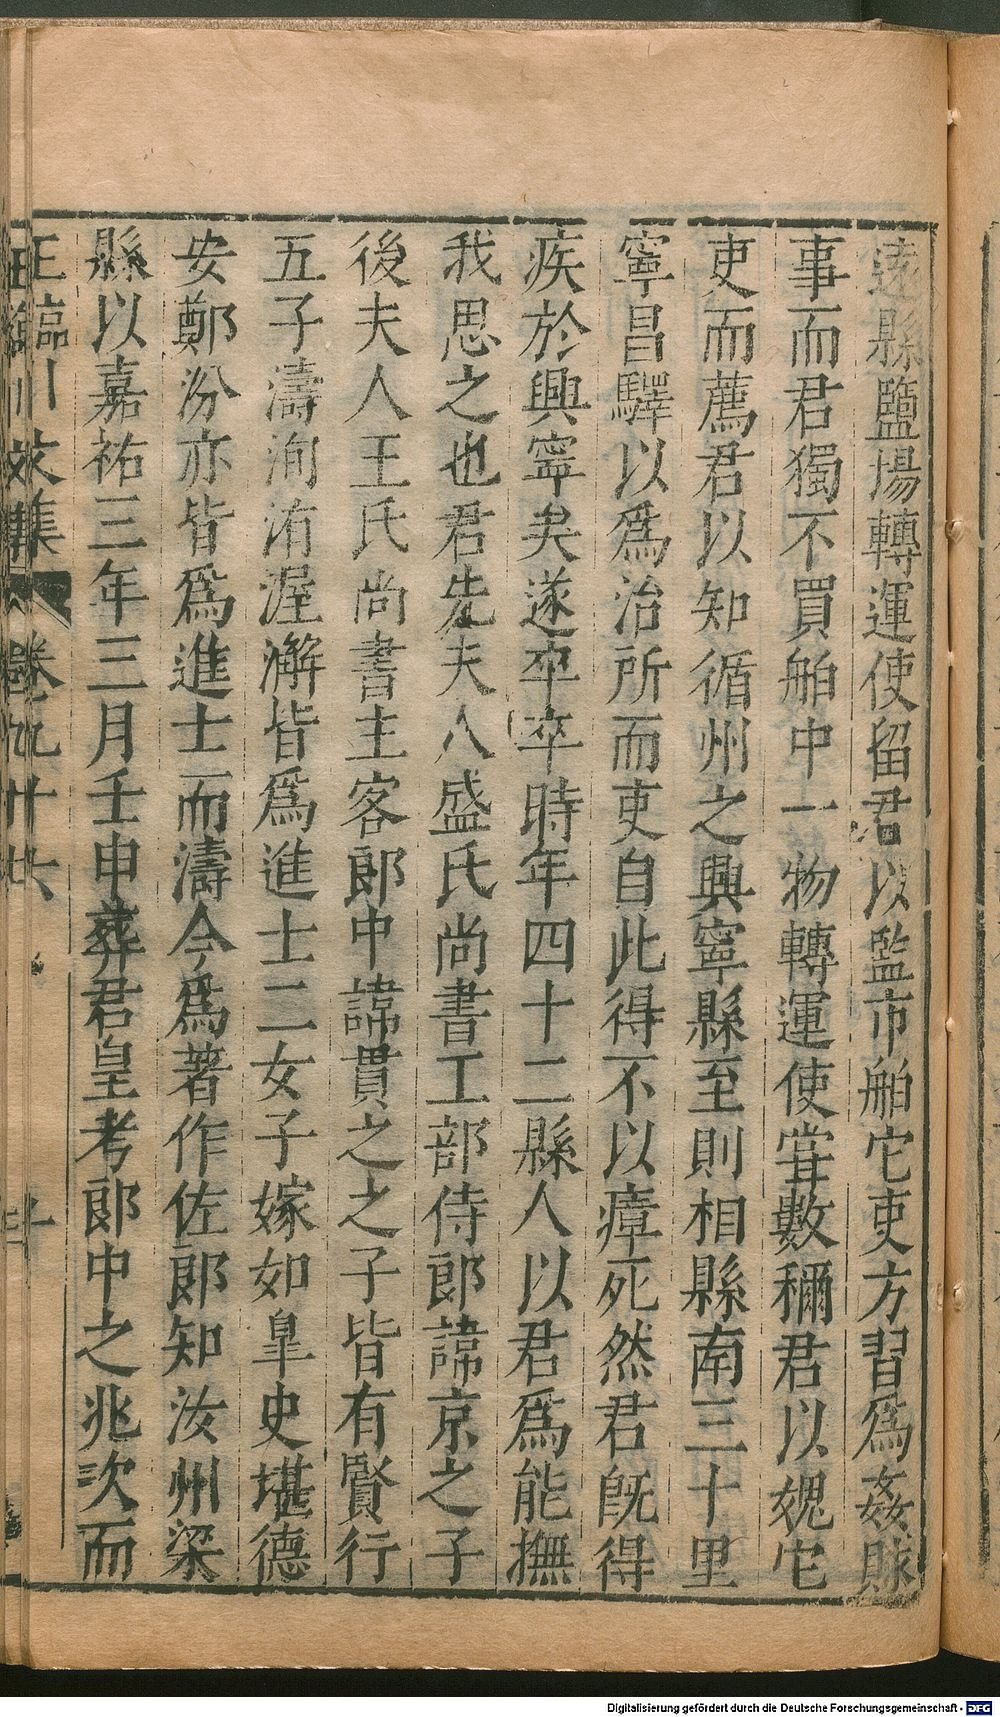 遠縣鹽場轉運使留君以監市舶它吏方習爲姦賕
事而君獨不買舶中一物轉運使甞數稱君以媿它
吏而薦君以知循州之興寧縣至則相縣南三十里
寧昌驛以爲治所而吏自此得不以瘴死然君旣得
疾於興寧矣遂卒卒時年四十二縣人以君爲能撫
我思之也君先夫人盛氏尚書工部侍郎諱京之子
後夫人王氏尚書主客郎中諱貫之之子皆有賢行
五子濤洵洧渥澥皆爲進士二女子嫁如臯史堪德
安鄭汾亦皆爲進士而濤今爲著作佐郎知汝州梁
縣以嘉祐三年三月壬申葬君皇考郎中之兆次而
王臨川文集 卷九十六 十
Digitalisierung gefördert durch die Deutsche Forschungsgemeinschaft - DFG